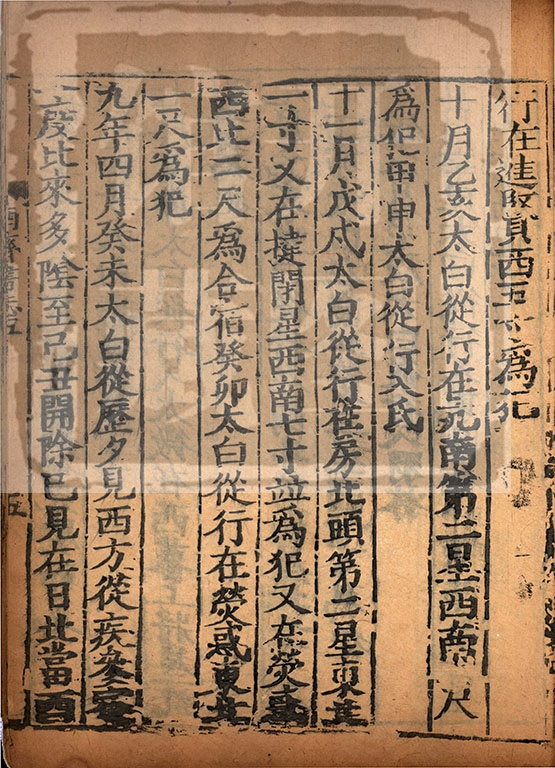 行在進賢西五寸爲犯
十月乙亥太白從行在亢南第二星西南一尺
爲犯甲申太白從行入氐
十一月戊戌太白從行在房北頭第二星東北
一寸又在楗閉星西南七寸並爲犯又在熒惑
西北二尺爲合宿癸卯太白從行在熒惑東北
一尺爲犯
九年四月癸未太白從歷夕見西方從疾參宿
一度比來多陰至己丑開除已見在日北當酉